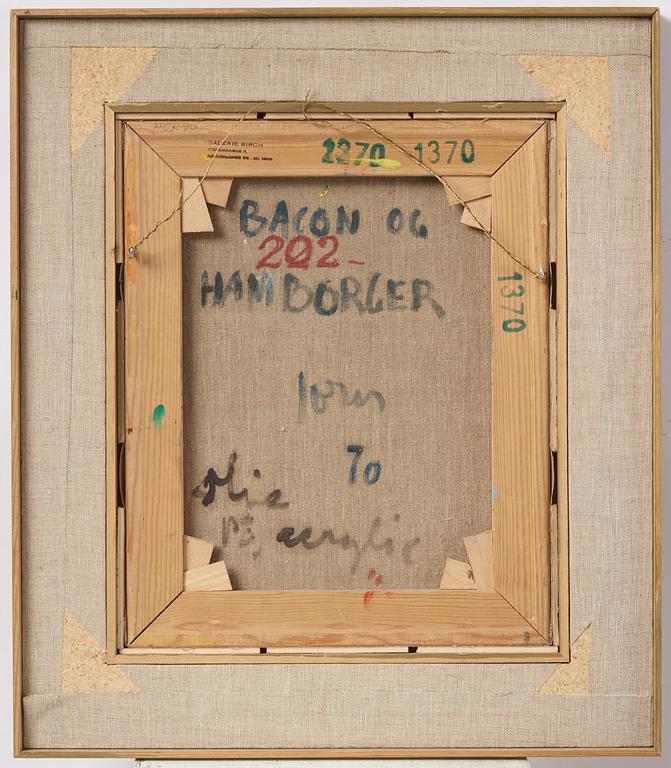 GALERIE BIRCH
1370 1370
BACON OG
202-
HAMBORGER
1370
Jorn
70
olie
på acrylic